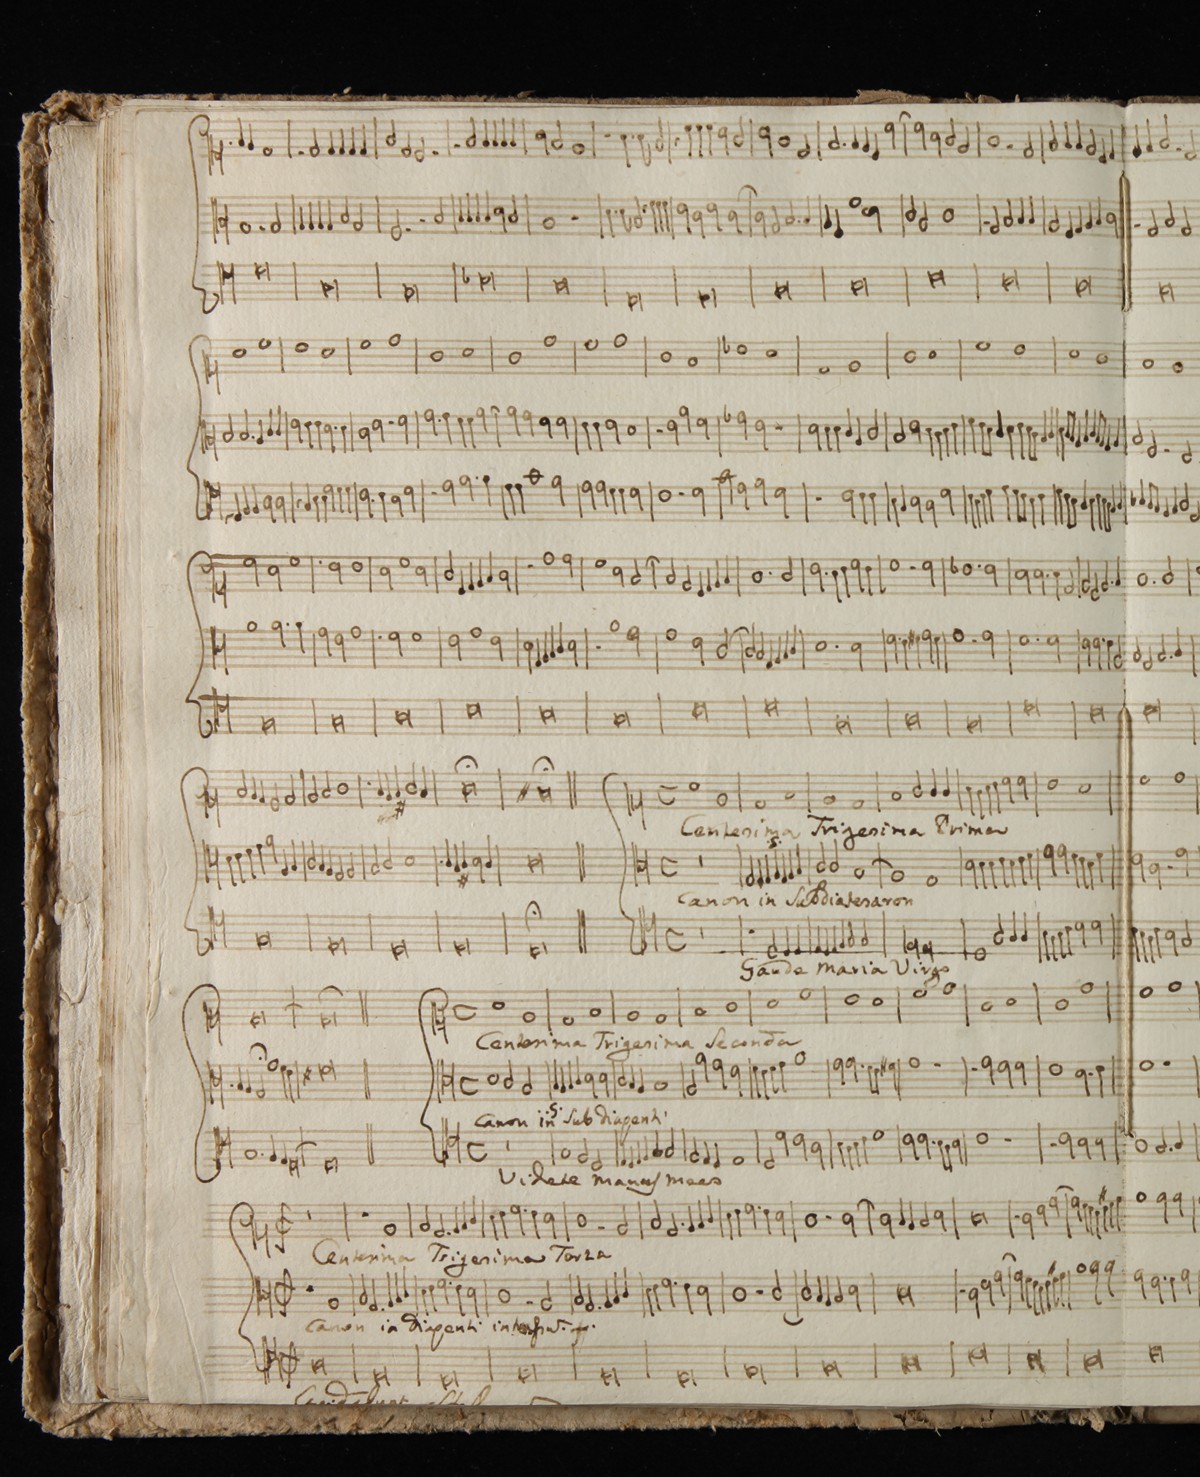 Centesima Trigesima Prima
Canon in Subdiatesaron
Gaude Maria Virgo
Centesima Trigesima Seconda
Canon in Sub diapenti
Videte manus meas
Centesima Trigesima Terza
Canon in diapenti